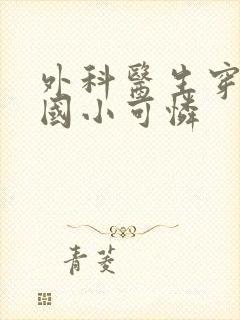 外科醫生穿
國小可憐
青菱